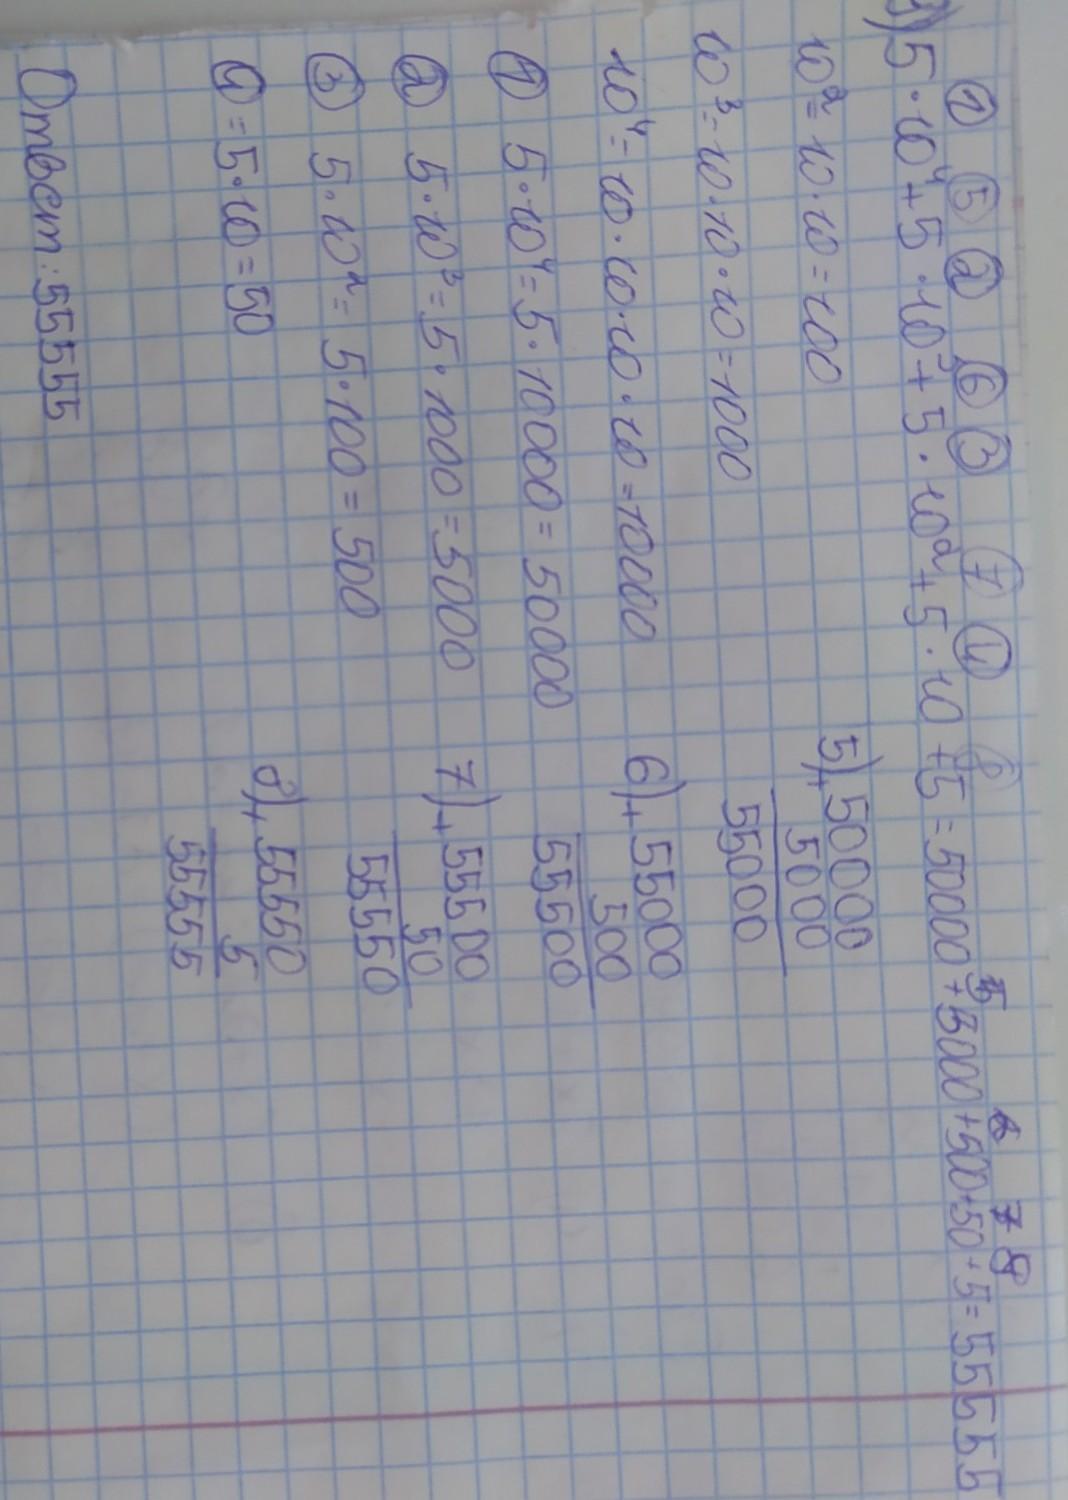 ① ⑤ ② ⑥ ③ ⑦ ④ ⑧ 5 6 7 8
5·10⁴+5·10³+5·10²+5·10+5=50000+5000+500+50+5=55555
10²=10·10=100
10³=10·10·10=1000
10⁴=10·10·10·10=10000
① 5·10⁴=5·10000=50000
② 5·10³=5·1000=5000
③ 5·10²=5·100=500
④=5·10=50
5)+50000
5000
55000
6)+55000
500
55500
7)+55500
50
55550
8)+55550
5
55555
Ответ:55555